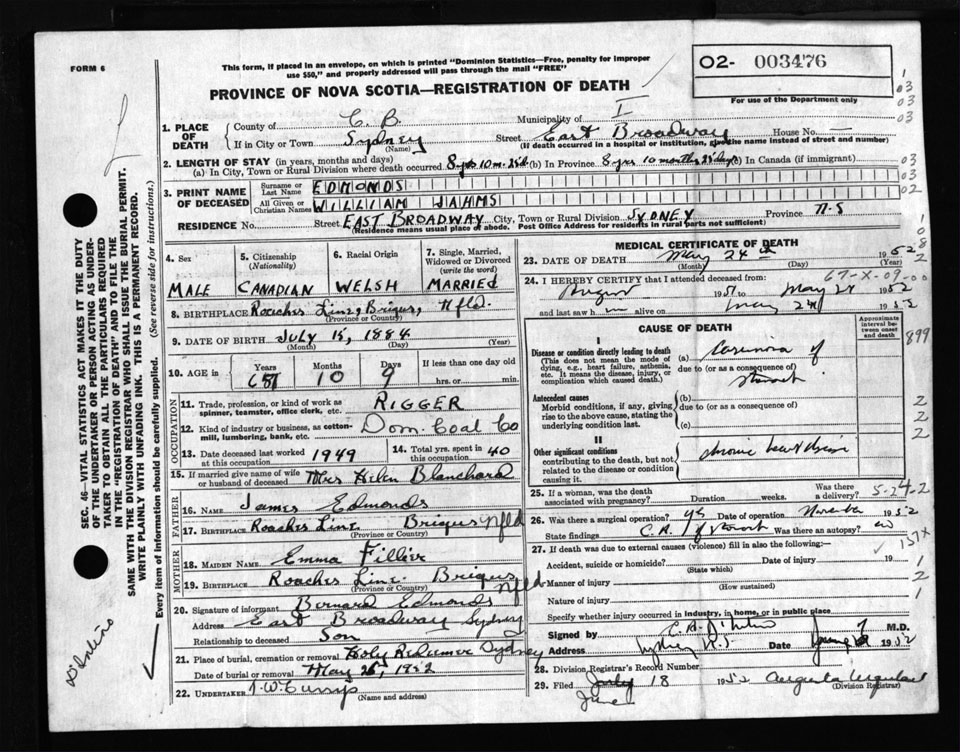 FORM 6
This form, if placed in an envelope, on which is printed "Dominion Statistics—Free, penalty for improper
use $50," and properly addressed will pass through the mail "FREE"
O2- 003476
For use of the Department only
PROVINCE OF NOVA SCOTIA—REGISTRATION OF DEATH
1. PLACE OF DEATH
County of C. B. Municipality of I
If in City or Town Sydney (Name) Street East Broadway House No. —
(If death occurred in a hospital or institution, give the name instead of street and number)
2. LENGTH OF STAY (in years, months and days)
(a) In City, Town or Rural Division where death occurred (b) In Province 8 yrs 10 months (c) In Canada (if immigrant)
3. PRINT NAME OF DECEASED
Surname or Last Name EDMONDS
All Given or Christian Names WILLIAM JAHMS
RESIDENCE No. Street EAST BROADWAY City, Town or Rural Division SYDNEY Province N.S
(Residence means usual place of abode. Post Office Address for residents in rural parts not sufficient)
4. Sex
MALE
5. Citizenship (Nationality)
CANADIAN
6. Racial Origin
WELSH
7. Single, Married, Widowed or Divorced (write the word)
MARRIED
8. BIRTHPLACE Roaches Line, Brigus, Nfld.
(Province or Country)
9. DATE OF BIRTH JULY 15, 1884
(Month) (Day) (Year)
10. AGE in Years Months 10 Days 9 If less than one day old hrs. or min.
OCCUPATION
11. Trade, profession, or kind of work as spinner, teamster, office clerk, etc. RIGGER
12. Kind of industry or business, as cotton-mill, lumbering, bank, etc. Dom. Coal Co
13. Date deceased last worked at this occupation 1949
14. Total yrs. spent in this occupation 40
15. If married give name of wife or husband of deceased Mrs Helen Blanchard
FATHER
16. Name James Edmonds
17. Birthplace Roaches Line Brigus Nfld
(Province or Country)
MOTHER
18. MAIDEN NAME Emma Fillier
19. BIRTHPLACE Roaches Line Brigus Nfld
(Province or Country)
20. Signature of informant Bernard Edmonds
Address East Broadway Sydney
Relationship to deceased Son
21. Place of burial, cremation or removal Holy Redeemer Sydney
Date of burial or removal May 26, 1952
22. UNDERTAKER T.W. Curry
(Name and address)
MEDICAL CERTIFICATE OF DEATH
23. DATE OF DEATH May 24th 1952
(Month) (Day) (Year)
67-X-09-00
24. I HEREBY CERTIFY that I attended deceased from:
August 1951 to May 24 1952
and last saw h m alive on May 24 1952
CAUSE OF DEATH
Approximate interval between onset and death
899
I
Disease or condition directly leading to death
(This does not mean the mode of dying, e.g., heart failure, asthenia, etc. It means the disease, injury, or complication which caused death.)
(a) Carcinoma of
due to (or as a consequence of)
stomach
Antecedent causes
Morbid conditions, if any, giving rise to the above cause, stating the underlying condition last.
(b)
due to (or as a consequence of)
(c)
II
Other significant conditions
contributing to the death, but not related to the disease or condition causing it.
chronic heart disease
25. If a woman, was the death associated with pregnancy? Duration weeks. Was there a delivery?
5-24-2
26. Was there a surgical operation? yes Date of operation November 1952
State findings C.A. of stomach Was there an autopsy? no
27. If death was due to external causes (violence) fill in also the following:—
151X
Accident, suicide or homicide? Date of injury 19
(State which)
Manner of injury
(How sustained)
Nature of injury
Specify whether injury occurred in industry, in home, or in public place
Signed by M.D.
Sydney N.S. Date 1952
28. Division Registrar's Record Number
29. Filed July 18 1952 Augusta Urquhart
June
(Division Registrar)
SEC. 46—VITAL STATISTICS ACT MAKES IT THE DUTY
OF THE UNDERTAKER OR PERSON ACTING AS UNDER-
TAKER TO OBTAIN ALL THE PARTICULARS REQUIRED
IN THE "REGISTRATION OF DEATH" AND TO FILE THE
SAME WITH THE DIVISION REGISTRAR WHO SHALL ISSUE THE BURIAL PERMIT.
WRITE PLAINLY WITH UNFADING INK. THIS IS A PERMANENT RECORD.
Every item of information should be carefully supplied. (See reverse side for instructions.)